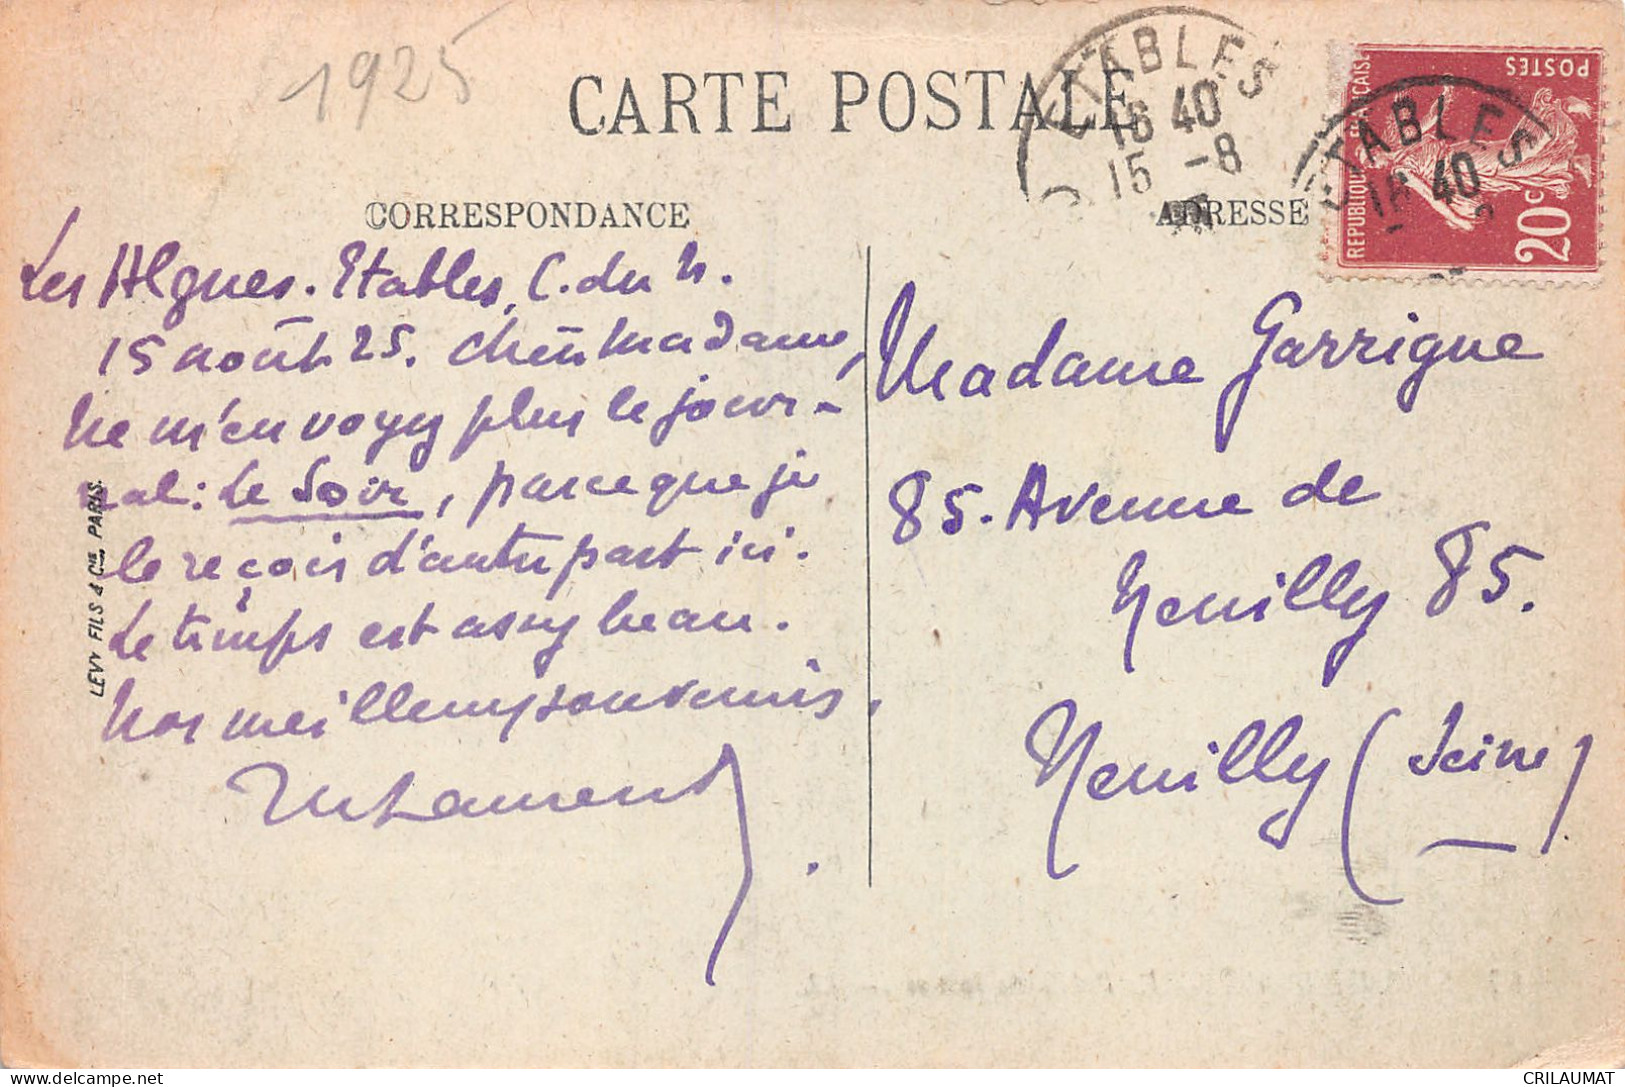 1925
CARTE POSTALE
ETABLES
16 40
15 -8
POSTES
REPUBLIQUE FRANÇAISE
20c
ETABLES
16 40
CORRESPONDANCE
ADRESSE
Les Algues. Etables, C. du N.
15 août 25. Chère Madame,
Ne m'envoyez plus le jour-
nal : Le Soir, parce que je
le reçois d'autre part ici.
Le temps est assez beau.
Nos meilleurs souvenirs,
Laurent
LEVY FILS & Cie, PARIS.
Madame Garrigue
85. Avenue de
Neuilly 85.
Neuilly (Seine)
CRILAUMAT